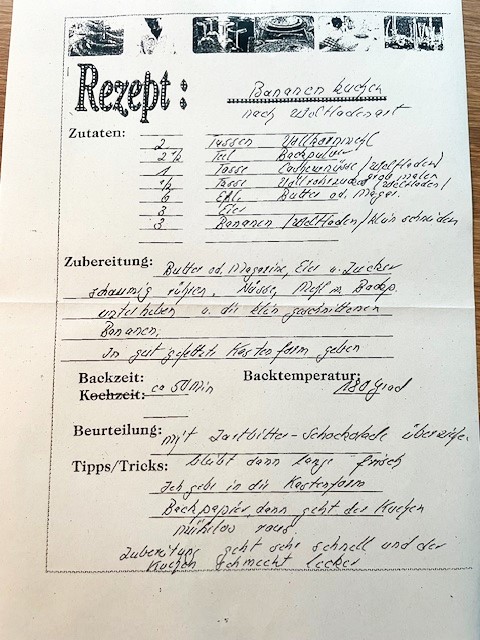 Rezept:
Bananenkuchen
nach Weltladenart
Zutaten:
2 Tassen Vollkornmehl
2 1/2 Teel Backpulver
1 Tasse Cashewnüsse (Weltladen)
grob malen
1/2 Tasse Vollrohrzucker (Weltladen)
6 Eßl. Butter od. Magar.
3 Eier
3 Bananen (Weltladen) klein schneiden
Zubereitung: Butter od. Magarine, Eier u. Zucker
schaumig rühren. Nüsse, Mehl m. Backp.
unterheben u. die klein geschnittenen
Bananen,
in gut gefettete Kastenform geben
Backzeit: Backtemperatur:
Kochzeit: ca 50 Min 180 Grad
Beurteilung: mit Zartbitter-Schockolade überziehe.
Tipps/Tricks: bleibt dann lange frisch
Ich gebe in die Kastenform
Backpapier, dann geht der Kuchen
mühelos raus
Zubereitung geht sehr schnell und der
Kuchen schmeckt lecker